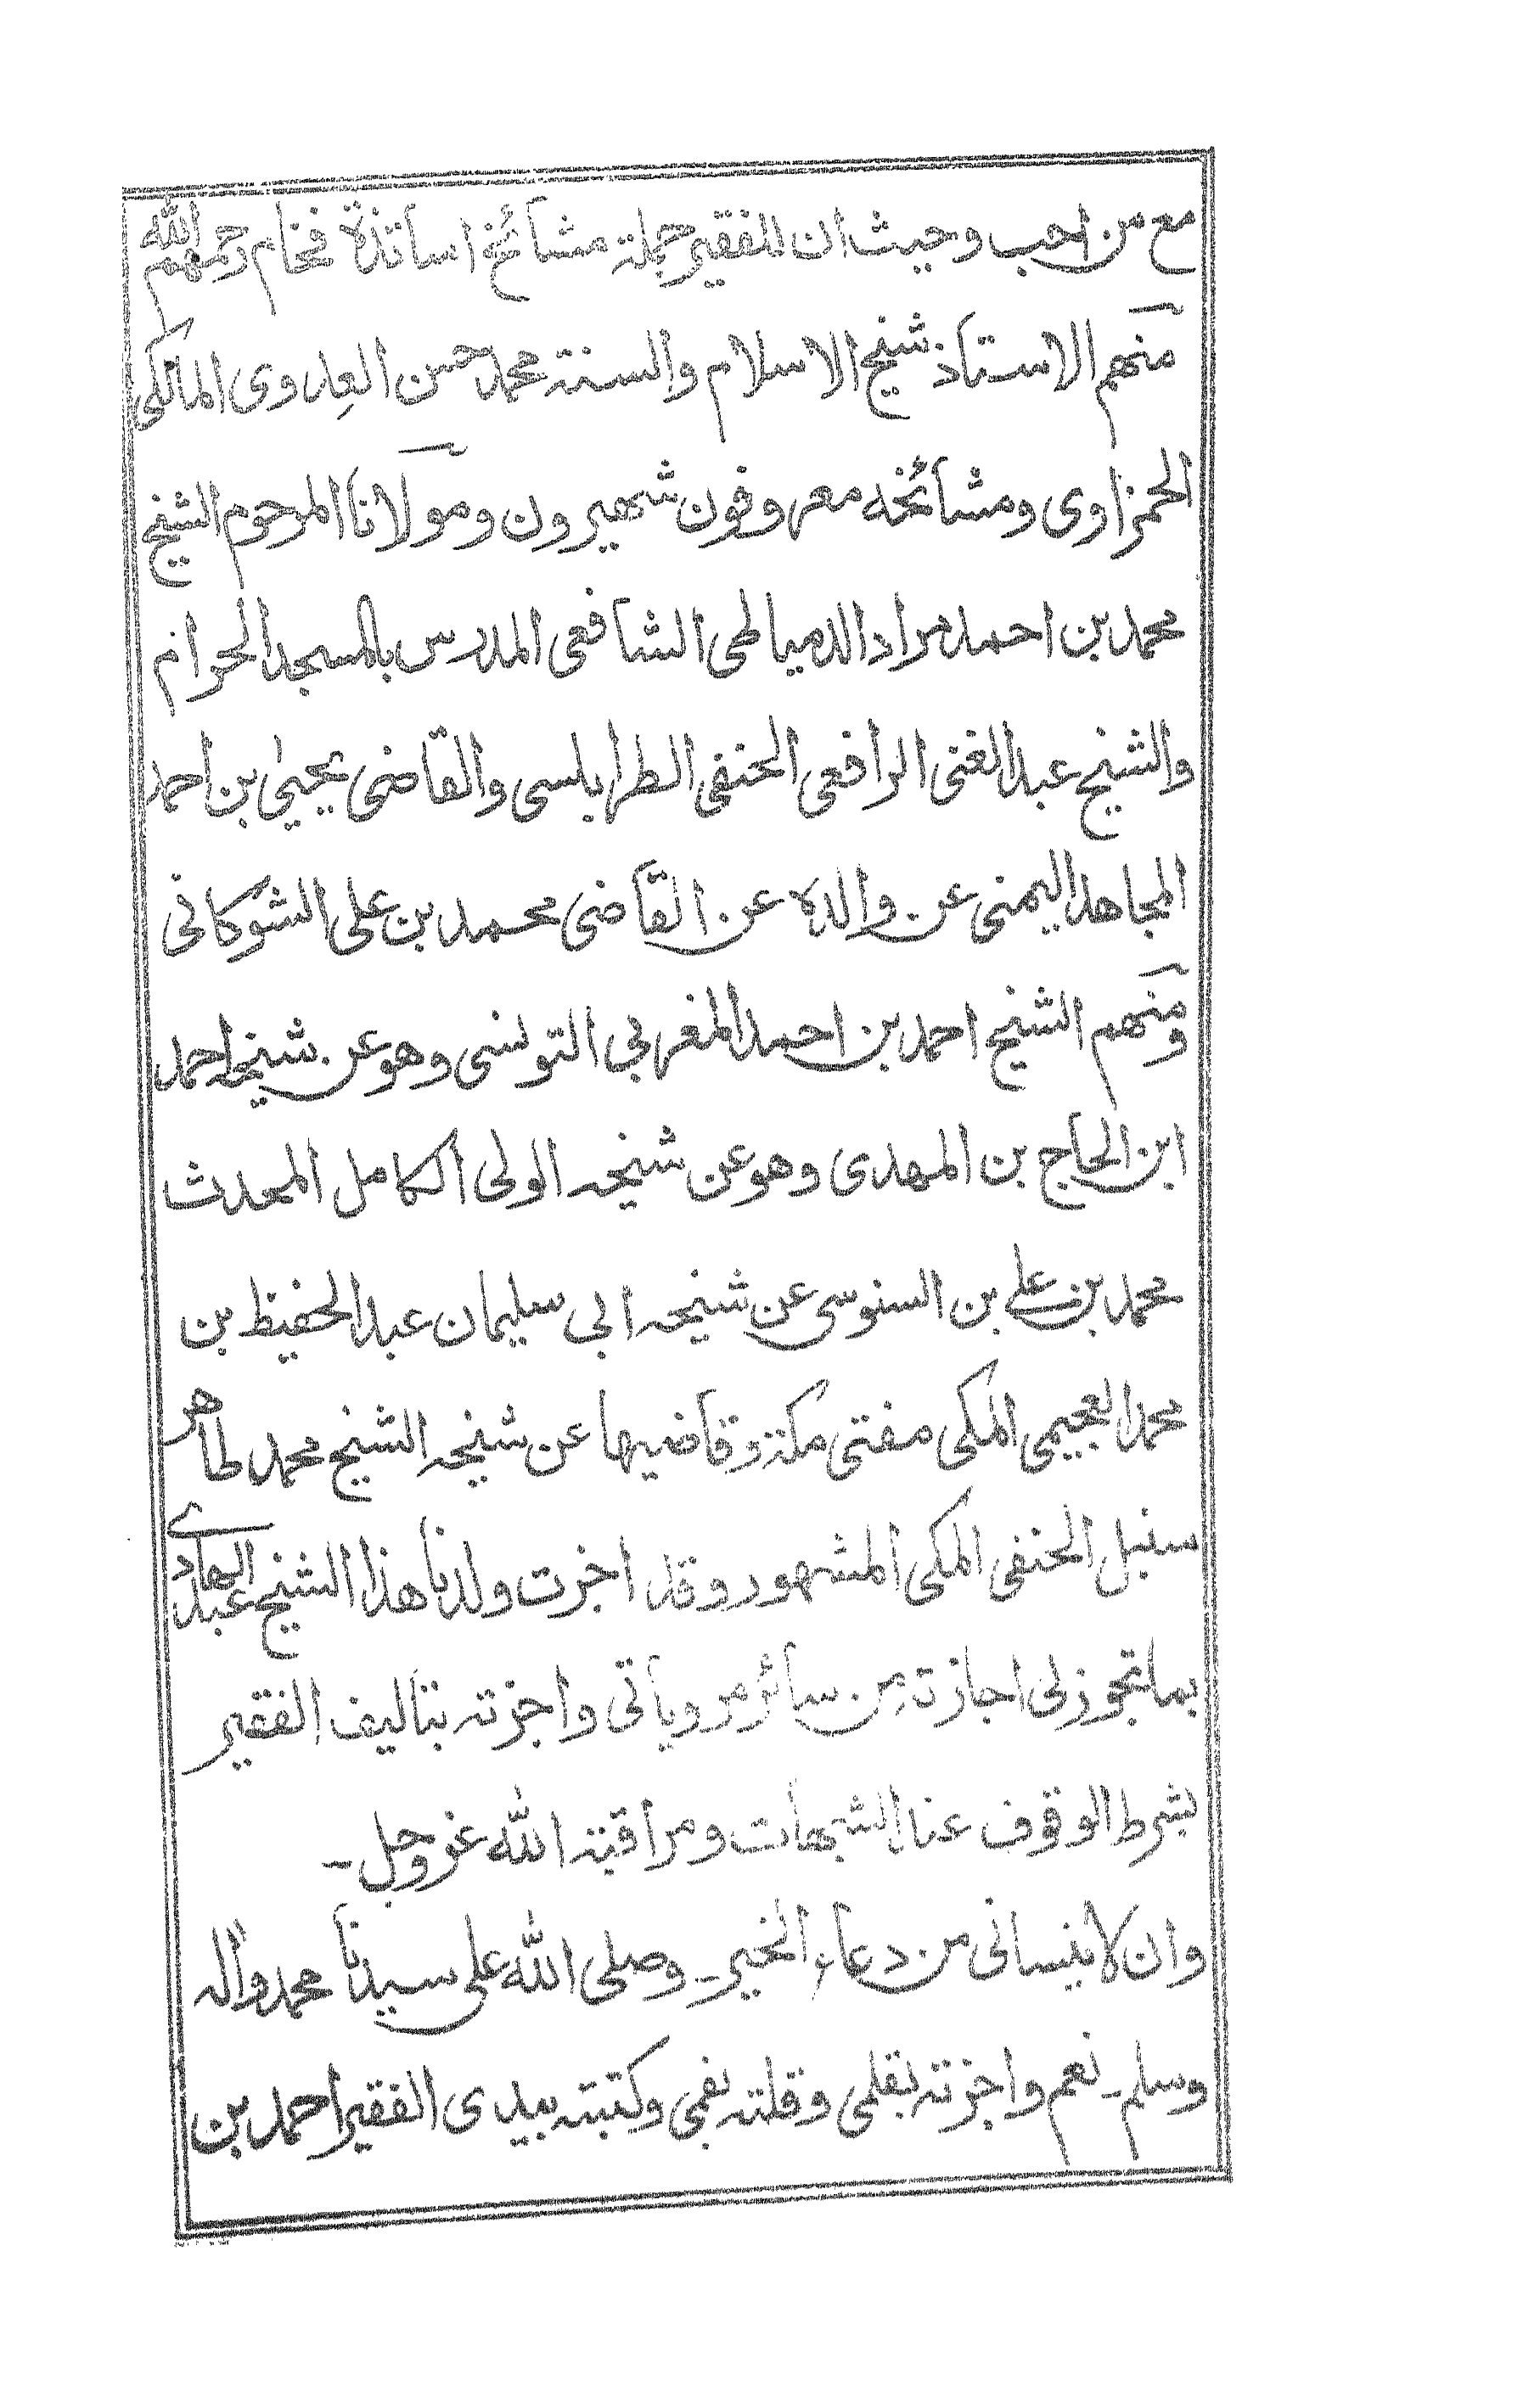 مع من احب وحيث ان للفقير جملة مشائخ اساتذة فخام رحمهم الله
منهم الاستاذ شيخ الاسلام والسنة محمد حسن العدوى المالكى
الحمزاوى ومشائخه معروفون شهيرون ومولانا المرحوم الشيخ
محمد بن احمد مراد الدمياطى الشافعى المدرس بالمسجد الحرام
والشيخ عبد الغنى الرافعى الحنفى الطرابلسى والقاضى يحيىٰ بن احمد
المجاهد اليمنى عن والده عن القاضى محمد بن على الشوكانى
ومنهم الشيخ احمد بن احمد المغربى التونسى وهو عن شيخه احمد
ابن الحاج بن المهدى وهو عن شيخه الولى الكامل المحدث
محمد بن على بن السنوسى عن شيخه ابى سليمان عبد الحفيظ بن
محمد العجيمى المكى مفتى مكة وقاضيها عن شيخه الشيخ محمد طاهر
سنبل الحنفى المكى المشهور وقد اجزت ولدنا هذا الشيخ عبد الهادے
بما تجوز لى اجازته من سائر مروياتى واجزته بتاليف الفقير
بشرط الوقوف عند الشبهات ومراقبة الله عز وجل ـ
وان لا ينسانى من دعاء الخير ـ وصلى الله على سيدنا محمد واله
وسلم ـ نعم واجزته بقلمى وقلته بفمى وكتبته بيدى الفقير احمد بن